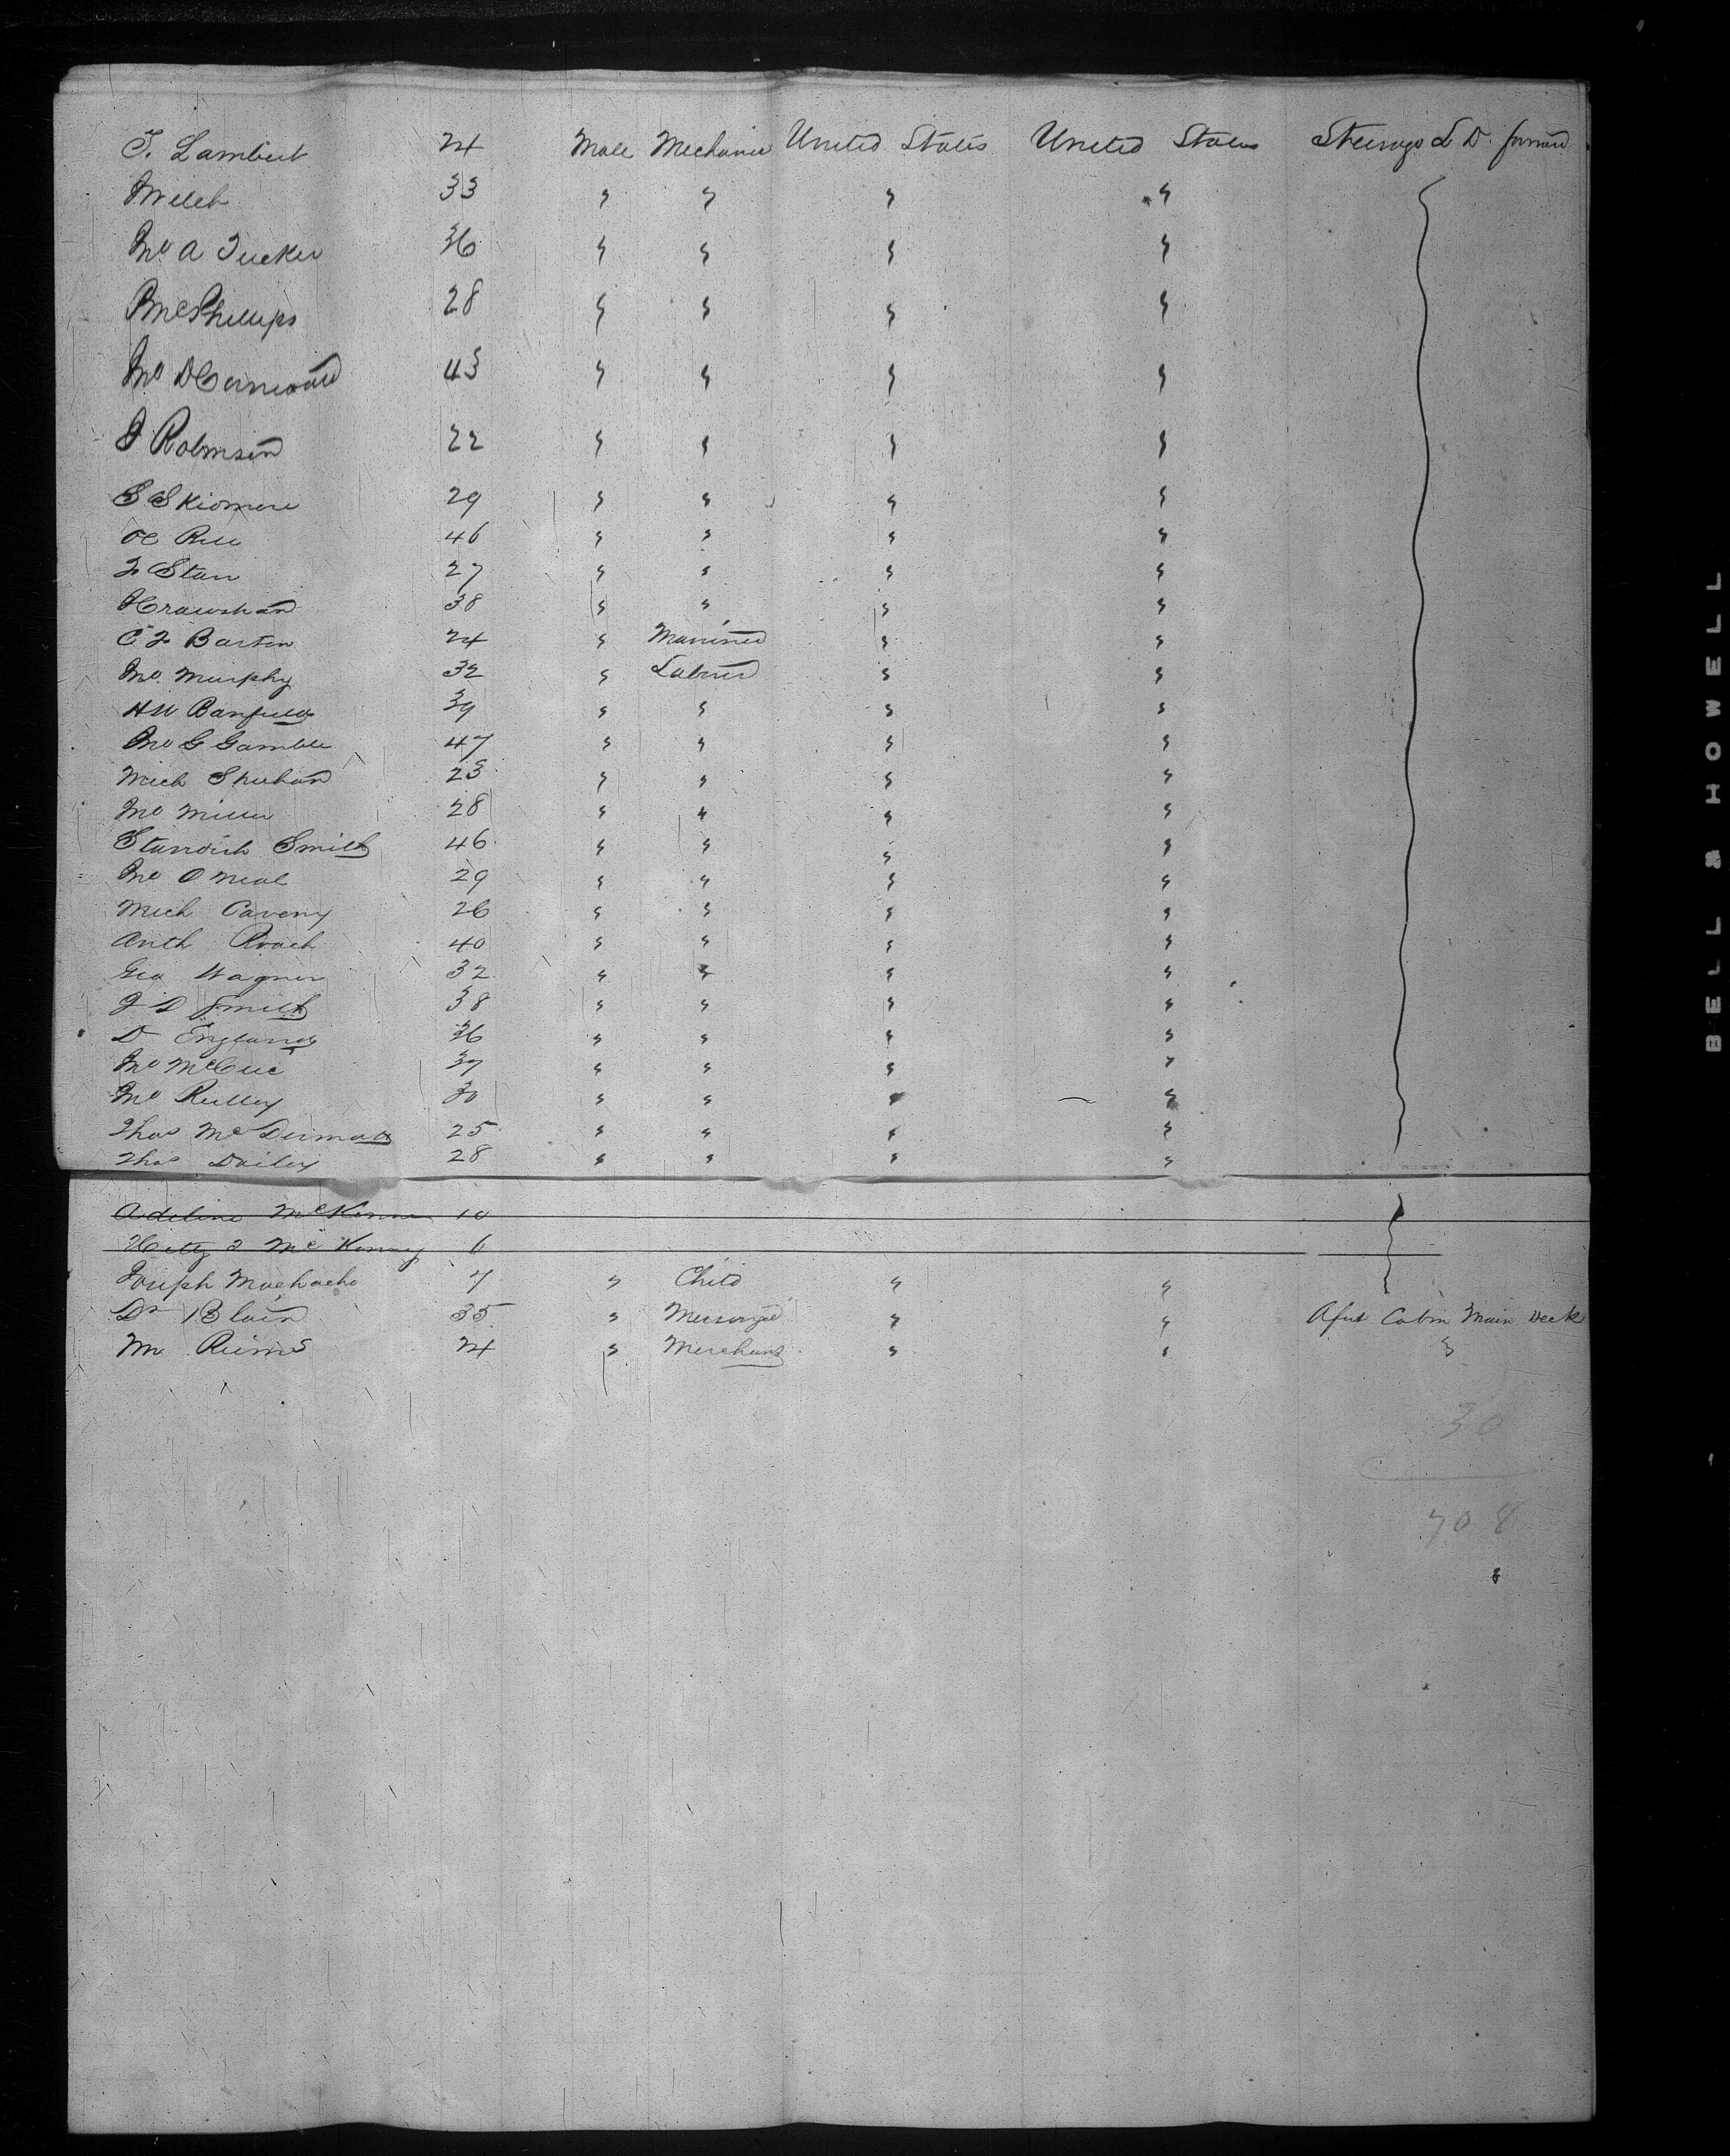 T. Lambert 24 Male Mechanic United States United States Steerage L D. forward
Welch 33 " " " "
Jno A Tucker 36 " " " "
P McPhillips 28 " " " "
Jno D 43 " " " "
J Robinson 22 " " " "
S Skidmore 29 " " " "
46 " " " "
F Starr 27 " " " "
38 " " " "
C F Barton 24 " Mariner " "
Jno Murphy 32 " Laborer " "
H W Banfield 39 " " " "
Jno G Gamble 47 " " " "
Mich Sheehan 23 " " " "
Jno Miller 28 " " " "
Standish Smith 46 " " " "
Jno O Neal 29 " " " "
Mich Caveny 26 " " " "
Anth Roach 40 " " " "
Geo Wagner 32 " " " "
J D Smith 38 " " " "
D England 36 " " " "
Jno McCue 37 " " " "
Jno Reilley 30 " " " "
Thos McDermott 25 " " " "
Thos Dailey 28 " " " "
Adeline McKinney 10
Hetty J McKinney 6
Joseph Machacho 7 " Child " "
Dr Blain 35 " " " Aft Cabin Main Deck
Mr 24 " Merchant " " "
30
708
BELL & HOWELL